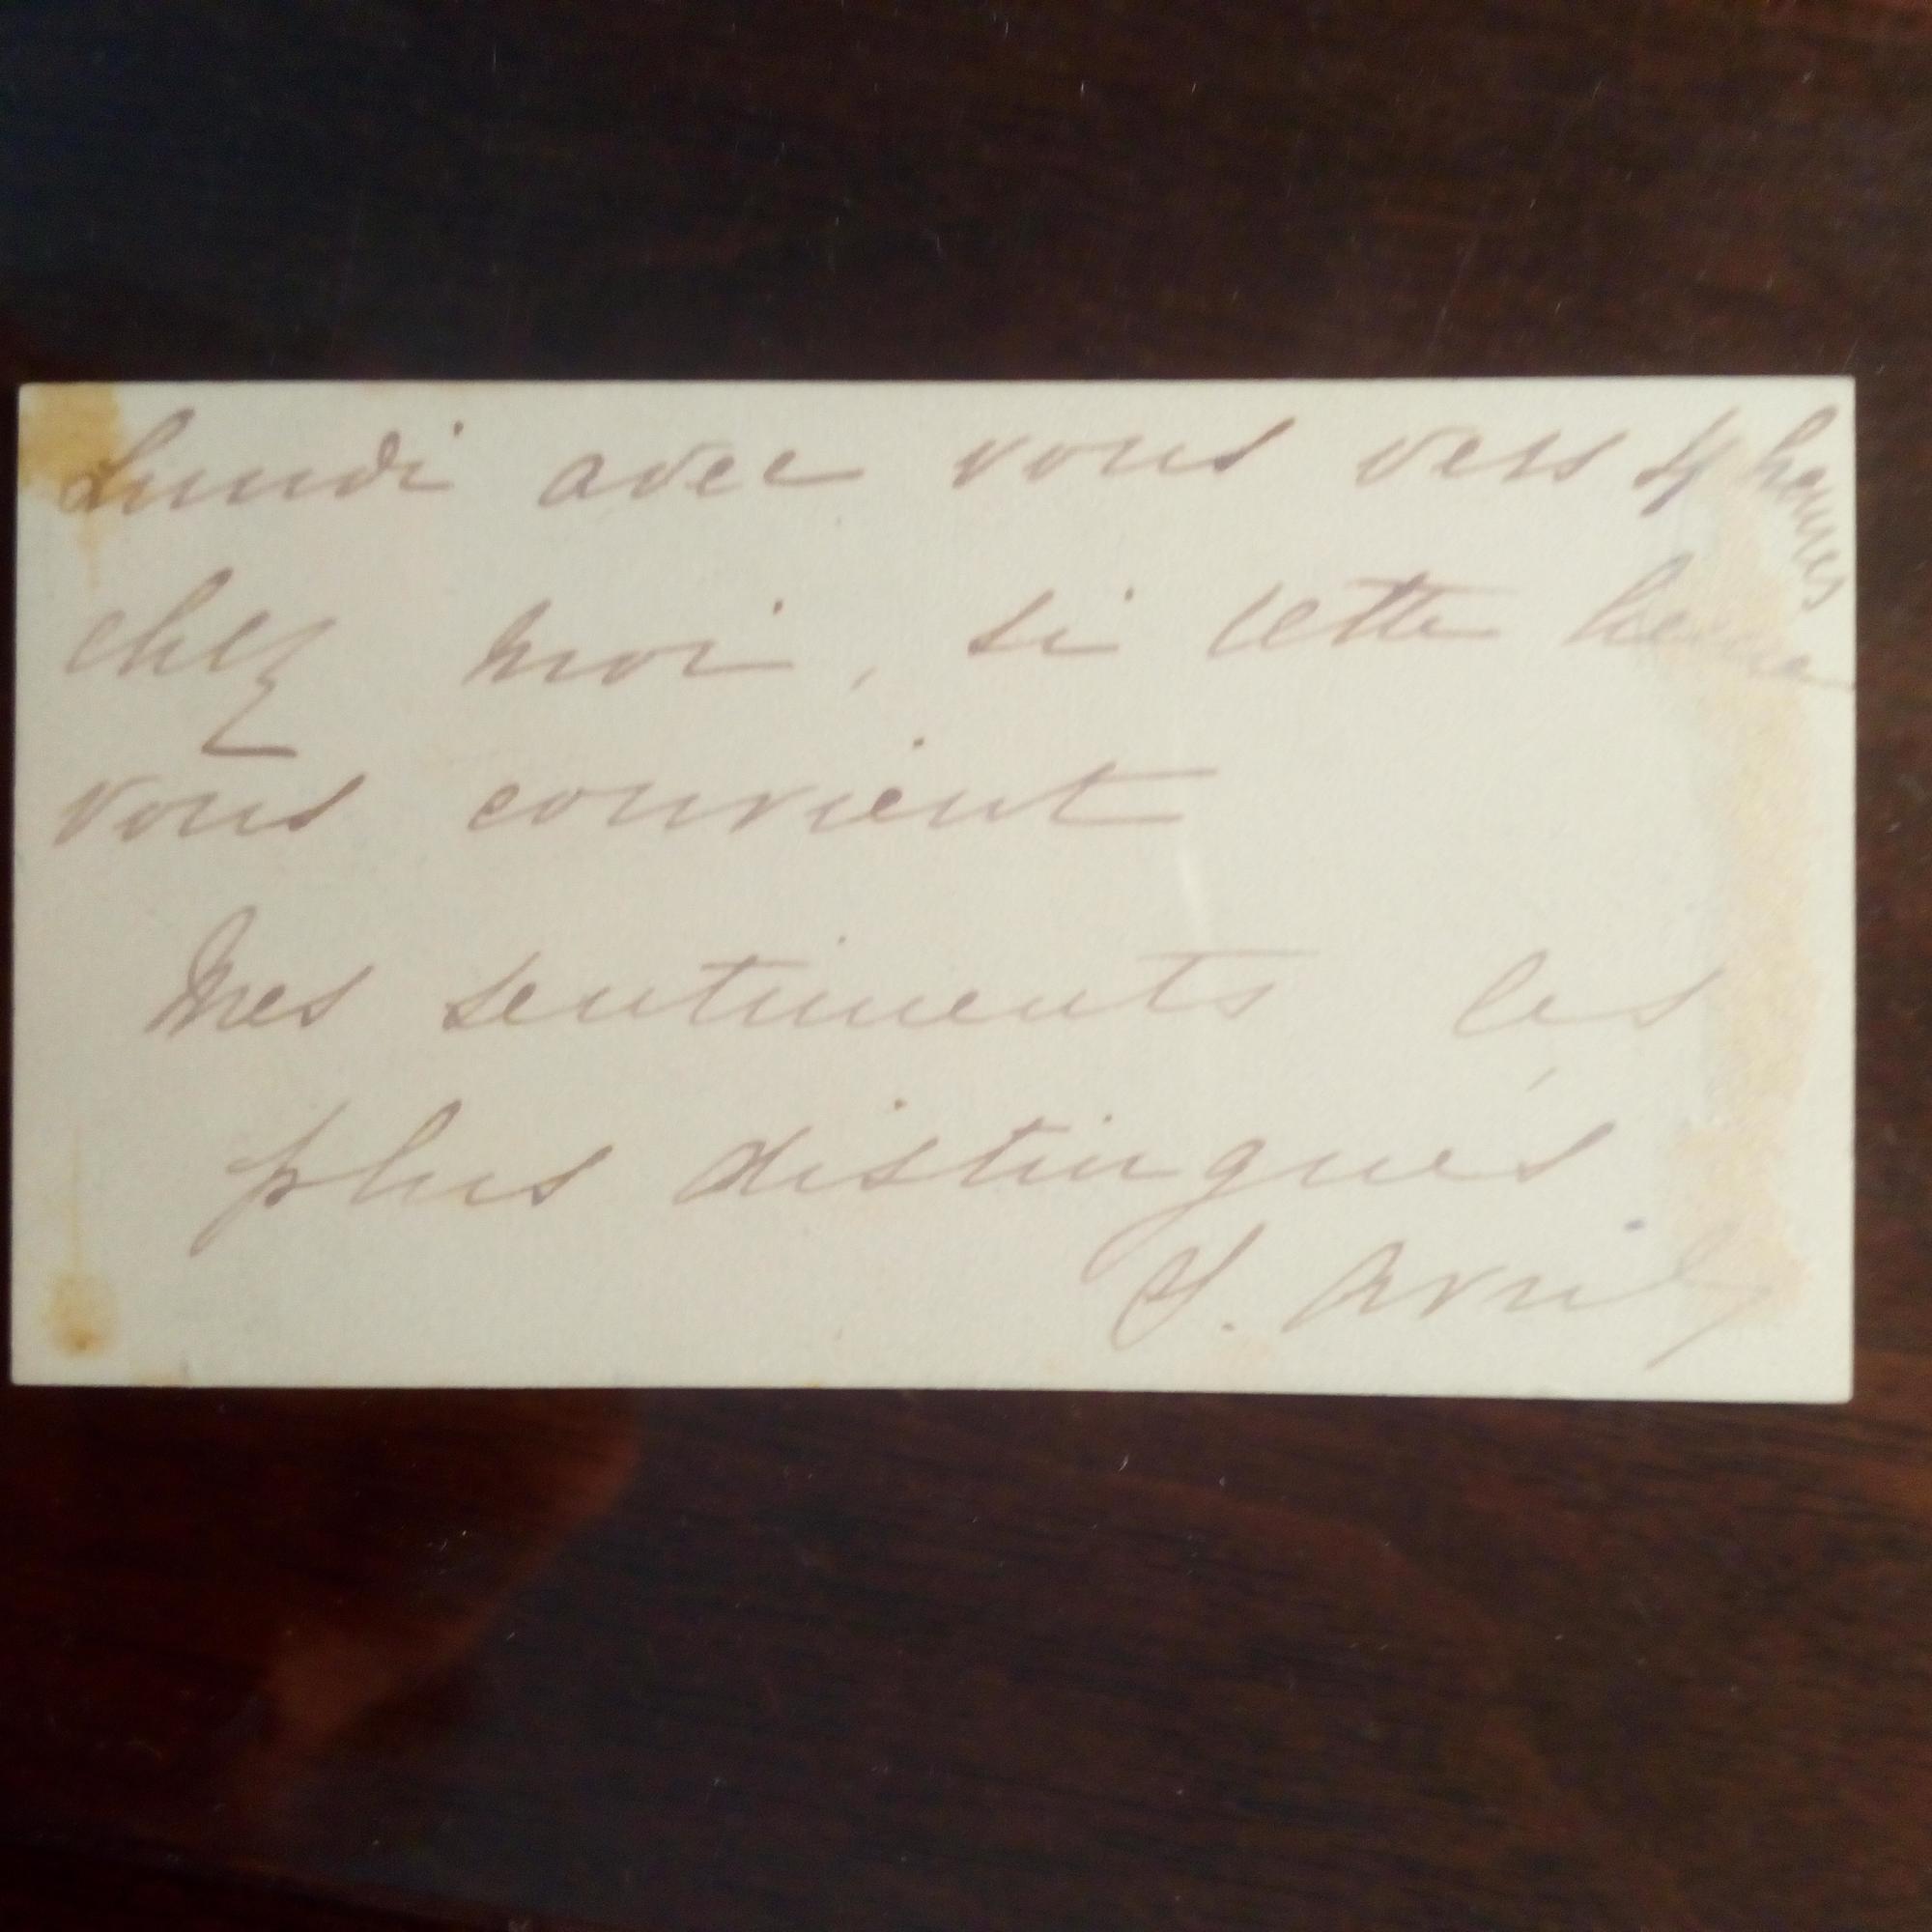 Lundi avec vous vers 4 heures
chez moi, si cette heure
vous convient
Mes sentiments les
plus distingués
Y. Avril